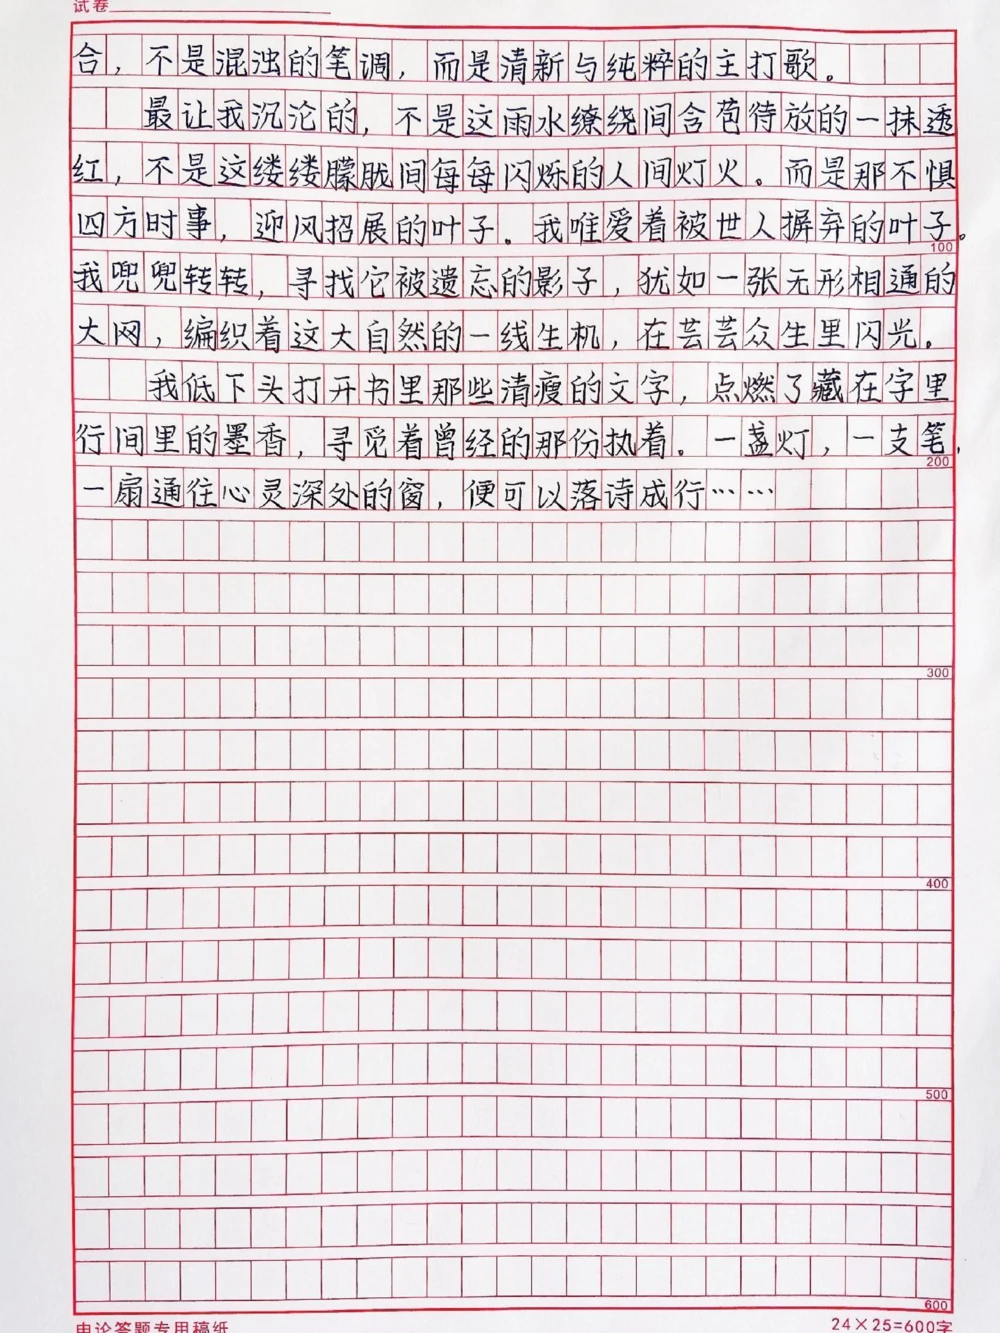 试卷
合，不是混浊的笔调，而是清新与纯粹的主打歌。
最让我沉沦的，不是这雨水缭绕间含苞待放的一抹透
红，不是这缕缕朦胧间每每闪烁的人间灯火。而是那不惧
四方时事，迎风招展的叶子。我唯爱着被世人摒弃的叶子。
100
我兜兜转转，寻找它被遗忘的影子，犹如一张无形相通的
大网，编织着这大自然的一线生机，在芸芸众生里闪光。
我低下头打开书里那些清瘦的文字，点燃了藏在字里
行间里的墨香，寻觅着曾经的那份执着。一盏灯，一支笔，
200
一扇通往心灵深处的窗，便可以落诗成行……
300
400
500
600
申论答题专用稿纸
24×25=600字